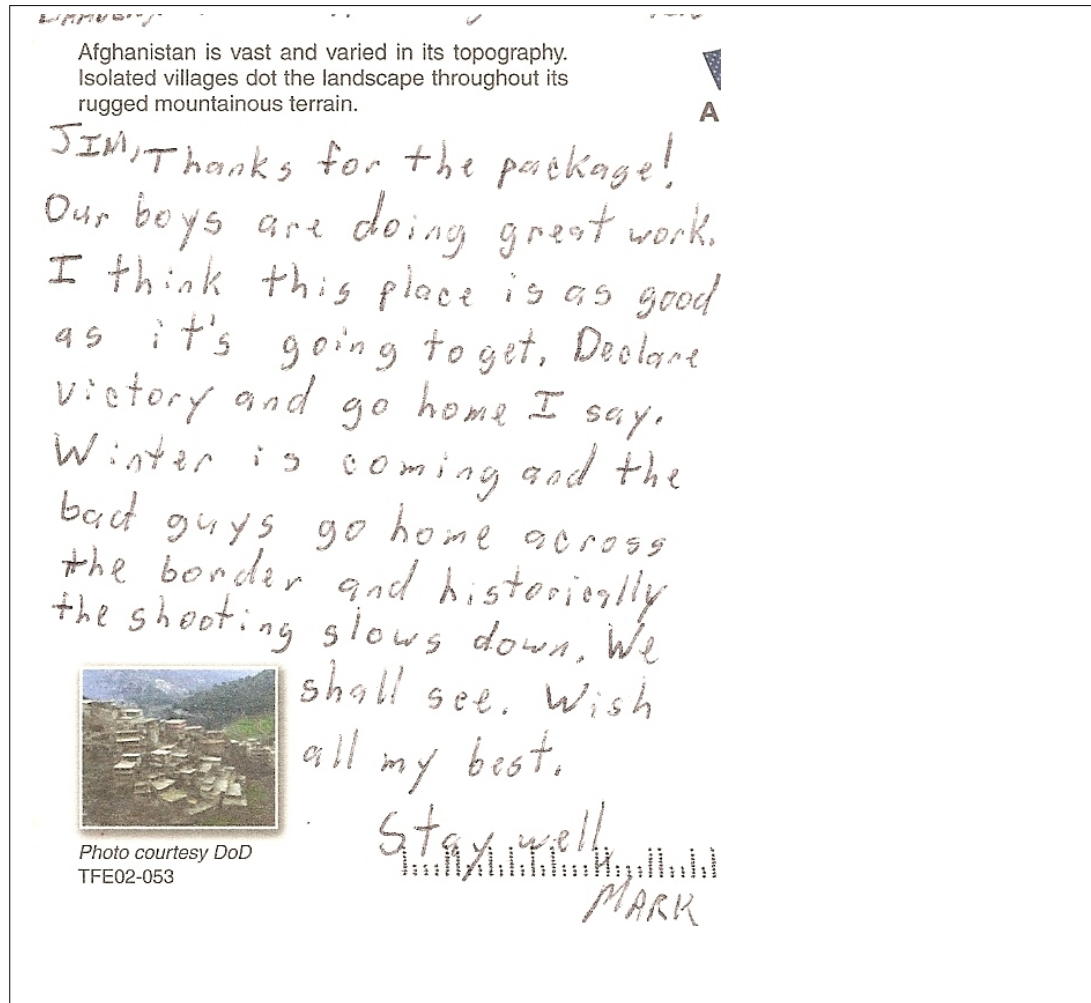 Afghanistan is vast and varied in its topography.
Isolated villages dot the landscape throughout its
rugged mountainous terrain.
A
JIM, Thanks for the package!
Our boys are doing great work.
I think this place is as good
as it's going to get. Declare
victory and go home I say.
Winter is coming and the
bad guys go home across
the border and historically
the shooting slows down. We
shall see. Wish
all my best.
Stay well,
MARK
Photo courtesy DoD
TFE02-053